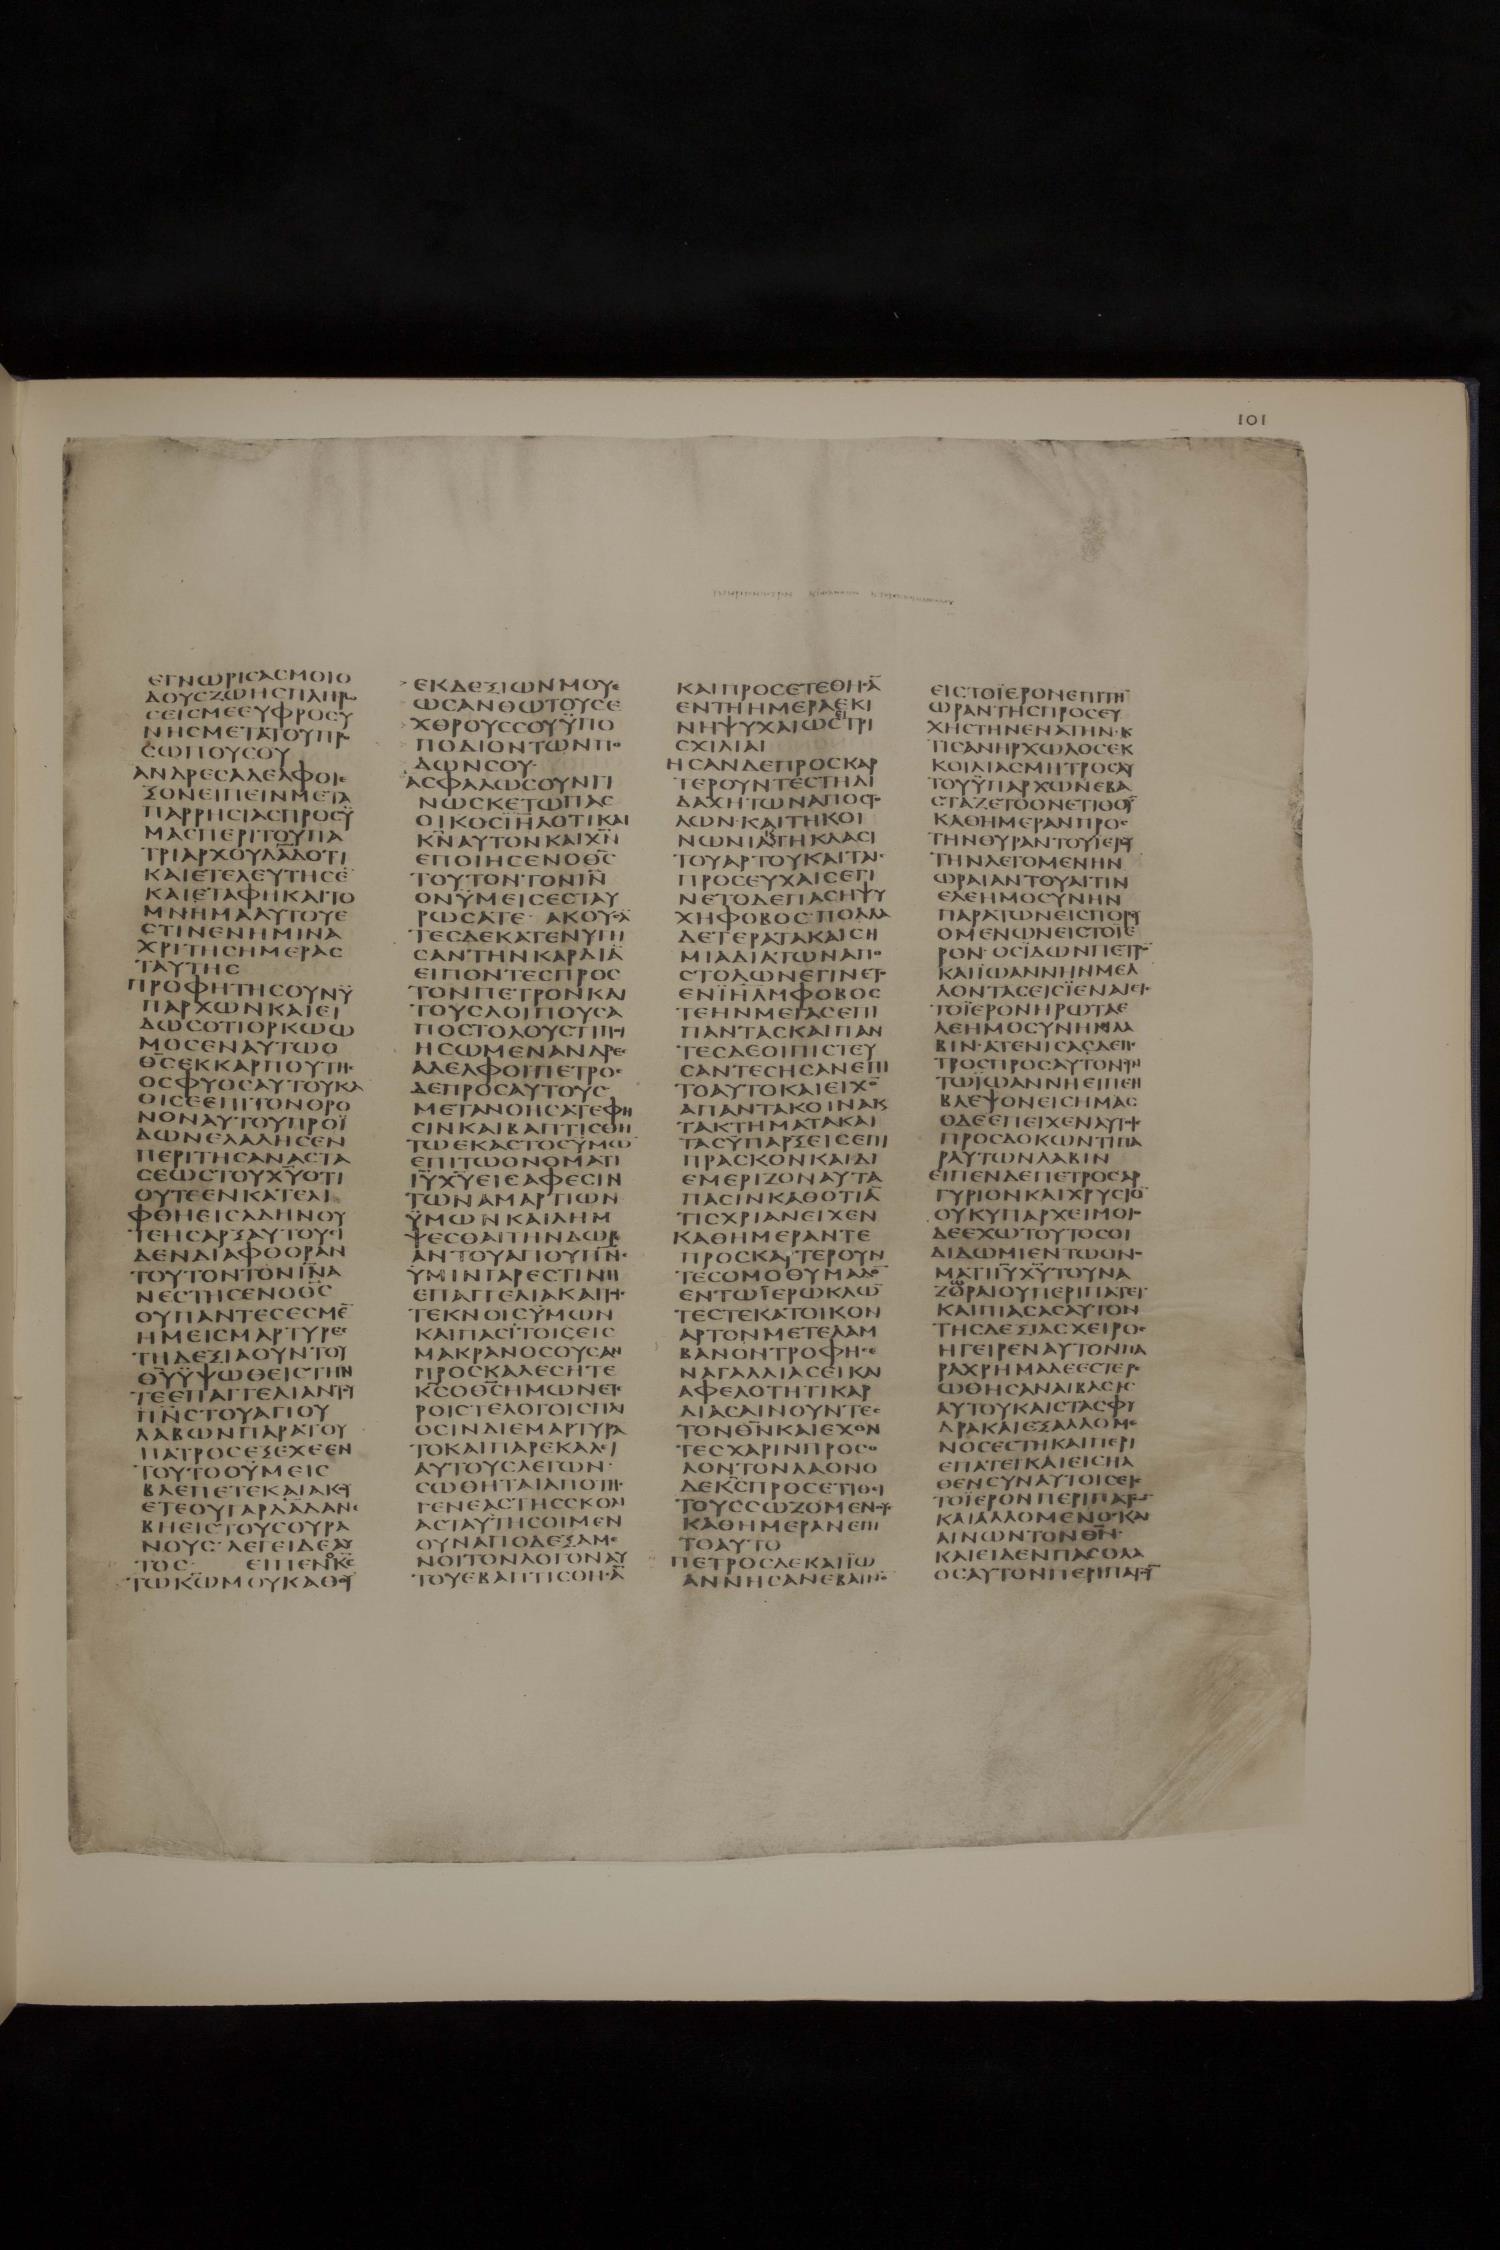 101
ΕΓΝΩΡΙCΑCΜΟΙΟ
ΔΟΥCΖΩΗCΠΛΗΡΩ
CΕΙCΜΕΕΥΦΡΟCΥ
ΝΗCΜΕΤΑΤΟΥΠΡ
CΩΠΟΥCΟΥ
ΑΝΔΡΕCΑΔΕΛΦΟΙΕ
ΞΟΝΕΙΠΕΙΝΜΕΤΑ
ΠΑΡΡΗCΙΑCΠΡΟCΫ
ΜΑCΠΕΡΙΤΟΥΠΑ
ΤΡΙΑΡΧΟΥΔΑΔΟΤΙ
ΚΑΙΕΤΕΛΕΥΤΗCΕ
ΚΑΙΕΤΑΦΗΚΑΙΤΟ
ΜΝΗΜΑΑΥΤΟΥΕ
CΤΙΝΕΝΗΜΙΝΑ
ΧΡΙΤΗCΗΜΕΡΑC
ΤΑΥΤΗC
ΠΡΟΦΗΤΗCΟΥΝΫ
ΠΑΡΧΩΝΚΑΙΕΙ
ΔΩCΟΤΙΟΡΚΩΩ
ΜΟCΕΝΑΥΤΩΟ
ΘCΕΚΚΑΡΠΟΥΤΗ
ΟCΦΥΟCΑΥΤΟΥΚΑ
ΘΙCΕΕΠΙΤΟΝΘΡΟ
ΝΟΝΑΥΤΟΥΠΡΟΪ
ΔΩΝΕΛΑΛΗCΕΝ
ΠΕΡΙΤΗCΑΝΑCΤΑ
CΕΩCΤΟΥΧΥΟΤΙ
ΟΥΤΕΕΝΚΑΤΕΛΙ
ΦΘΗΕΙCΑΔΗΝΟΥ
ΤΕΗCΑΡΞΑΥΤΟΥΕΙ
ΔΕΝΔΙΑΦΘΟΡΑΝ
ΤΟΥΤΟΝΤΟΝΙΝΑ
ΝΕCΤΗCΕΝΟΘC
ΟΥΠΑΝΤΕCΕCΜΕ
ΗΜΕΙCΜΑΡΤΥΡΕC
ΤΗΔΕΞΙΑΟΥΝΤΟΥ
ΘΥΫΨΩΘΕΙCΤΗΝ
ΤΕΕΠΑΓΓΕΛΙΑΝΤΗ
ΠΝCΤΟΥΑΓΙΟΥ
ΛΑΒΩΝΠΑΡΑΤΟΥ
ΠΑΤΡΟCΕΞΕΧΕΕΝ
ΤΟΥΤΟΟΫΜΕΙC
ΒΛΕΠΕΤΕΚΑΙΑΚΟΥ
ΕΤΕΟΥΓΑΡΔΑΔΑΝΕ
ΒΗΕΙCΤΟΥCΟΥΡΑ
ΝΟΥC·ΛΕΓΕΙΔΕΑΥ
ΤΟC· ΕΙΠΕΝΟΚC
ΤΩΚΩΜΟΥΚΑΘΟΥ
ΕΚΔΕΞΙΩΝΜΟΥΕ
ΩCΑΝΘΩΤΟΥCΕ
ΧΘΡΟΥCCΟΥΫΠΟ
ΠΟΔΙΟΝΤΩΝΠΟ
ΔΩΝCΟΥ·
ΑCΦΑΛΩCΟΥΝΓΙ
ΝΩCΚΕΤΩΠΑC
ΟΙΚΟCΙΗΛΟΤΙΚΑΙ
ΚΝΑΥΤΟΝΚΑΙΧΝ
ΕΠΟΙΗCΕΝΟΘC
ΤΟΥΤΟΝΤΟΝΙΝ
ΟΝΫΜΕΙCΕCΤΑΥ
ΡΩCΑΤΕ· ΑΚΟΥCΑ
ΤΕCΔΕΚΑΤΕΝΥΓΗ
CΑΝΤΗΝΚΑΡΔΙΑ
ΕΙΠΟΝΤΕCΠΡΟC
ΤΟΝΠΕΤΡΟΝΚΑΙ
ΤΟΥCΛΟΙΠΟΥCΑ
ΠΟCΤΟΛΟΥCΤΙΠΟΙ
ΗCΩΜΕΝΑΝΔΡΕC
ΑΔΕΛΦΟΙΠΕΤΡΟC
ΔΕΠΡΟCΑΥΤΟΥC
ΜΕΤΑΝΟΗCΑΤΕΦΗ
CΙΝΚΑΙΒΑΠΤΙCΘΗ
ΤΩΕΚΑCΤΟCΫΜΩ
ΕΠΙΤΩΟΝΟΜΑΤΙ
ΙΥΧΥΕΙCΑΦΕCΙΝ
ΤΩΝΑΜΑΡΤΙΩΝ
ΫΜΩΝΚΑΙΛΗΜ
ΨΕCΘΑΙΤΗΝΔΩΡΕ
ΑΝΤΟΥΑΓΙΟΥΠΝC
ΫΜΙΝΓΑΡΕCΤΙΝΗ
ΕΠΑΓΓΕΛΙΑΚΑΙΤΟΙC
ΤΕΚΝΟΙCΫΜΩΝ
ΚΑΙΠΑCΙΤΟΙCΕΙC
ΜΑΚΡΑΝΟCΟΥCΑΝ
ΠΡΟCΚΑΛΕCΗΤΕ
ΚCΟΘCΗΜΩΝΕΤΕ
ΡΟΙCΤΕΛΟΓΟΙCΠΛΙ
ΟCΙΝΔΙΕΜΑΡΤΥΡΑ
ΤΟΚΑΙΠΑΡΕΚΑΛΕΙ
ΑΥΤΟΥCΛΕΓΩΝ·
CΩΘΗΤΑΙΑΠΟΤΗC
ΓΕΝΕΑCΤΗCCΚΟΛΙ
ΑCΤΑΥΤΗCΟΙΜΕΝ
ΟΥΝΑΠΟΔΕΞΑΜΕ
ΝΟΙΤΟΝΛΟΓΟΝΑΥ
ΤΟΥΕΒΑΠΤΙCΘΗCΑ
ΚΑΙΠΡΟCΕΤΕΘΗCΑ
ΕΝΤΗΗΜΕΡΑΕΚΙ
ΝΗΨΥΧΑΙΩCΕΙΤΡΙ
CΧΙΛΙΑΙ
ΗCΑΝΔΕΠΡΟCΚΑΡ
ΤΕΡΟΥΝΤΕCΤΗΔΙ
ΔΑΧΗΤΩΝΑΠΟCΤΟ
ΛΩΝ·ΚΑΙΤΗΚΟΙ
ΝΩΝΙΑΤΗΚΛΑCΙ
ΤΟΥΑΡΤΟΥΚΑΙΤΑΙC
ΠΡΟCΕΥΧΑΙCΕΓΙ
ΝΕΤΟΔΕΠΑCΗΨΥ
ΧΗΦΟΒΟC·ΠΟΛΛΑ
ΔΕΤΕΡΑΤΑΚΑΙCΗ
ΜΙΑΔΙΑΤΩΝΑΠΟ
CΤΟΛΩΝΕΓΙΝΕΤΟ
ΕΝΪΗΛΜΦΟΒΟC
ΤΕΗΝΜΕΓΑCΕΠΙ
ΠΑΝΤΑCΚΑΙΠΑΝ
ΤΕCΔΕΟΙΠΙCΤΕΥ
CΑΝΤΕCΗCΑΝΕΠΙ
ΤΟΑΥΤΟΚΑΙΕΙΧΟ
ΑΠΑΝΤΑΚΟΙΝΑΚ
ΤΑΚΤΗΜΑΤΑΚΑΙ
ΤΑCΫΠΑΡΞΕΙCΕΠΙ
ΠΡΑCΚΟΝΚΑΙΔΙ
ΕΜΕΡΙΖΟΝΑΥΤΑ
ΠΑCΙΝΚΑΘΟΤΙΑ
ΤΙCΧΡΙΑΝΕΙΧΕΝ
ΚΑΘΗΜΕΡΑΝΤΕ
ΠΡΟCΚΑΡΤΕΡΟΥΝ
ΤΕCΟΜΟΘΥΜΑΔΟ
ΕΝΤΩΪΕΡΩΚΛΩ
ΤΕCΤΕΚΑΤΟΙΚΟΝ
ΑΡΤΟΝΜΕΤΕΛΑΜ
ΒΑΝΟΝΤΡΟΦΗCΕ
ΝΑΓΑΛΛΙΑCΕΙΚΑΙ
ΑΦΕΛΟΤΗΤΙΚΑΡ
ΔΙΑCΑΙΝΟΥΝΤΕC
ΤΟΝΘΝΚΑΙΕΧΟΝ
ΤΕCΧΑΡΙΝΠΡΟCΟ
ΛΟΝΤΟΝΛΑΟΝΟ
ΔΕΚCΠΡΟCΕΤΙΘΕΙ
ΤΟΥCCΩΖΟΜΕΝΟΥC
ΚΑΘΗΜΕΡΑΝΕΠΙ
ΤΟΑΥΤΟ
ΠΕΤΡΟCΔΕΚΑΙΪΩ
ΑΝΝΗCΑΝΕΒΑΙΝΟ
ΕΙCΤΟΪΕΡΟΝΕΠΙΤΗ
ΩΡΑΝΤΗCΠΡΟCΕΥ
ΧΗCΤΗΝΕΝΑΤΗΝ·Κ
ΤΙCΑΝΗΡΧΩΛΟCΕΚ
ΚΟΙΛΙΑCΜΗΤΡΟCΑΥ
ΤΟΥΫΠΑΡΧΩΝΕΒΑ
CΤΑΖΕΤΟΟΝΕΤΙΘΟΥ
ΚΑΘΗΜΕΡΑΝΠΡΟC
ΤΗΝΘΥΡΑΝΤΟΥΙΕΡΟΥ
ΤΗΝΛΕΓΟΜΕΝΗΝ
ΩΡΑΙΑΝΤΟΥΑΙΤΙΝ
ΕΛΕΗΜΟCΥΝΗΝ
ΠΑΡΑΤΩΝΕΙCΠΟΡΕΥ
ΟΜΕΝΩΝΕΙCΤΟΙΕ
ΡΟΝ·ΟCΪΔΩΝΠΕΤΡΟ
ΚΑΙΪΩΑΝΝΗΝΜΕΛ
ΛΟΝΤΑCΕΙCΪΕΝΑΙΕΙC
ΤΟΪΕΡΟΝΗΡΩΤΑΕ
ΛΕΗΜΟCΥΝΗΝΛΑ
ΒΙΝ·ΑΤΕΝΙCΑCΔΕΠΕ
ΤΡΟCΠΡΟCΑΥΤΟΝCΥΝ
ΤΩΪΩΑΝΝΗΕΙΠΕΝ
ΒΛΕΨΟΝΕΙCΗΜΑC
ΟΔΕΕΠΕΙΧΕΝΑΥΤΟΙC
ΠΡΟCΔΟΚΩΝΤΙΠΑ
ΡΑΥΤΩΝΛΑΒΙΝ
ΕΙΠΕΝΔΕΠΕΤΡΟCΑΡ
ΓΥΡΙΟΝΚΑΙΧΡΥCΙΟ
ΟΥΚΥΠΑΡΧΕΙΜΟΙΟ
ΔΕΕΧΩΤΟΥΤΟCΟΙ
ΔΙΔΩΜΙΕΝΤΩΟΝΟ
ΜΑΤΙΙΥΧΥΤΟΥΝΑ
ΖΩΡΑΙΟΥΠΕΡΙΠΑΤΕΙ
ΚΑΙΠΙΑCΑCΑΥΤΟΝ
ΤΗCΔΕΞΙΑCΧΕΙΡΟC
ΗΓΕΙΡΕΝΑΥΤΟΝΠΑ
ΡΑΧΡΗΜΑΔΕΕCΤΕΡΕ
ΩΘΗCΑΝΑΙΒΑCΙC
ΑΥΤΟΥΚΑΙCΤΑCΦΥ
ΔΡΑΚΑΙΕΞΑΛΛΟΜΕ
ΝΟCΕCΤΗΚΑΙΠΕΡΙ
ΕΠΑΤΕΙΚΑΙΕΙCΗΛ
ΘΕΝCΥΝΑΥΤΟΙCΕΙC
ΤΟΪΕΡΟΝΠΕΡΙΠΑΤΩ
ΚΑΙΑΛΛΟΜΕΝΟCΚΑΙ
ΑΙΝΩΝΤΟΝΘΝ·
ΚΑΙΕΙΔΕΝΠΑCΟΛΑ
ΟCΑΥΤΟΝΠΕΡΙΠΑΤΟΥ